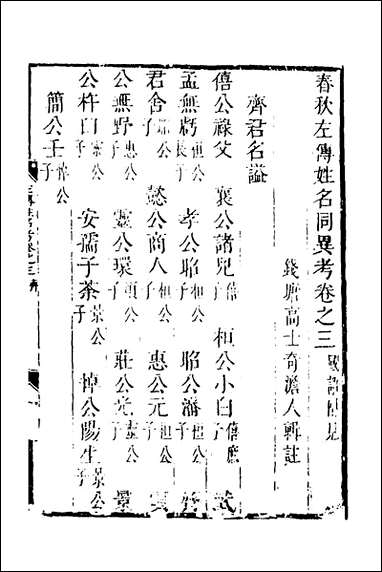 春秋左傳姓名同異考卷之三
錢塘高士奇澹人輯註
齊君名謚
僖公祿父 襄公諸兒僖公子 桓公小白僖庶 武
孟無虧桓公長子 孝公昭桓公子 昭公潘桓公子 齊
君舍昭公子 懿公商人桓公子 惠公元桓公子
公無野惠公子 靈公環頃公子 莊公光靈公子 景
公杵臼靈公子 安孺子荼景公子 悼公陽生景公子
簡公壬悼公子